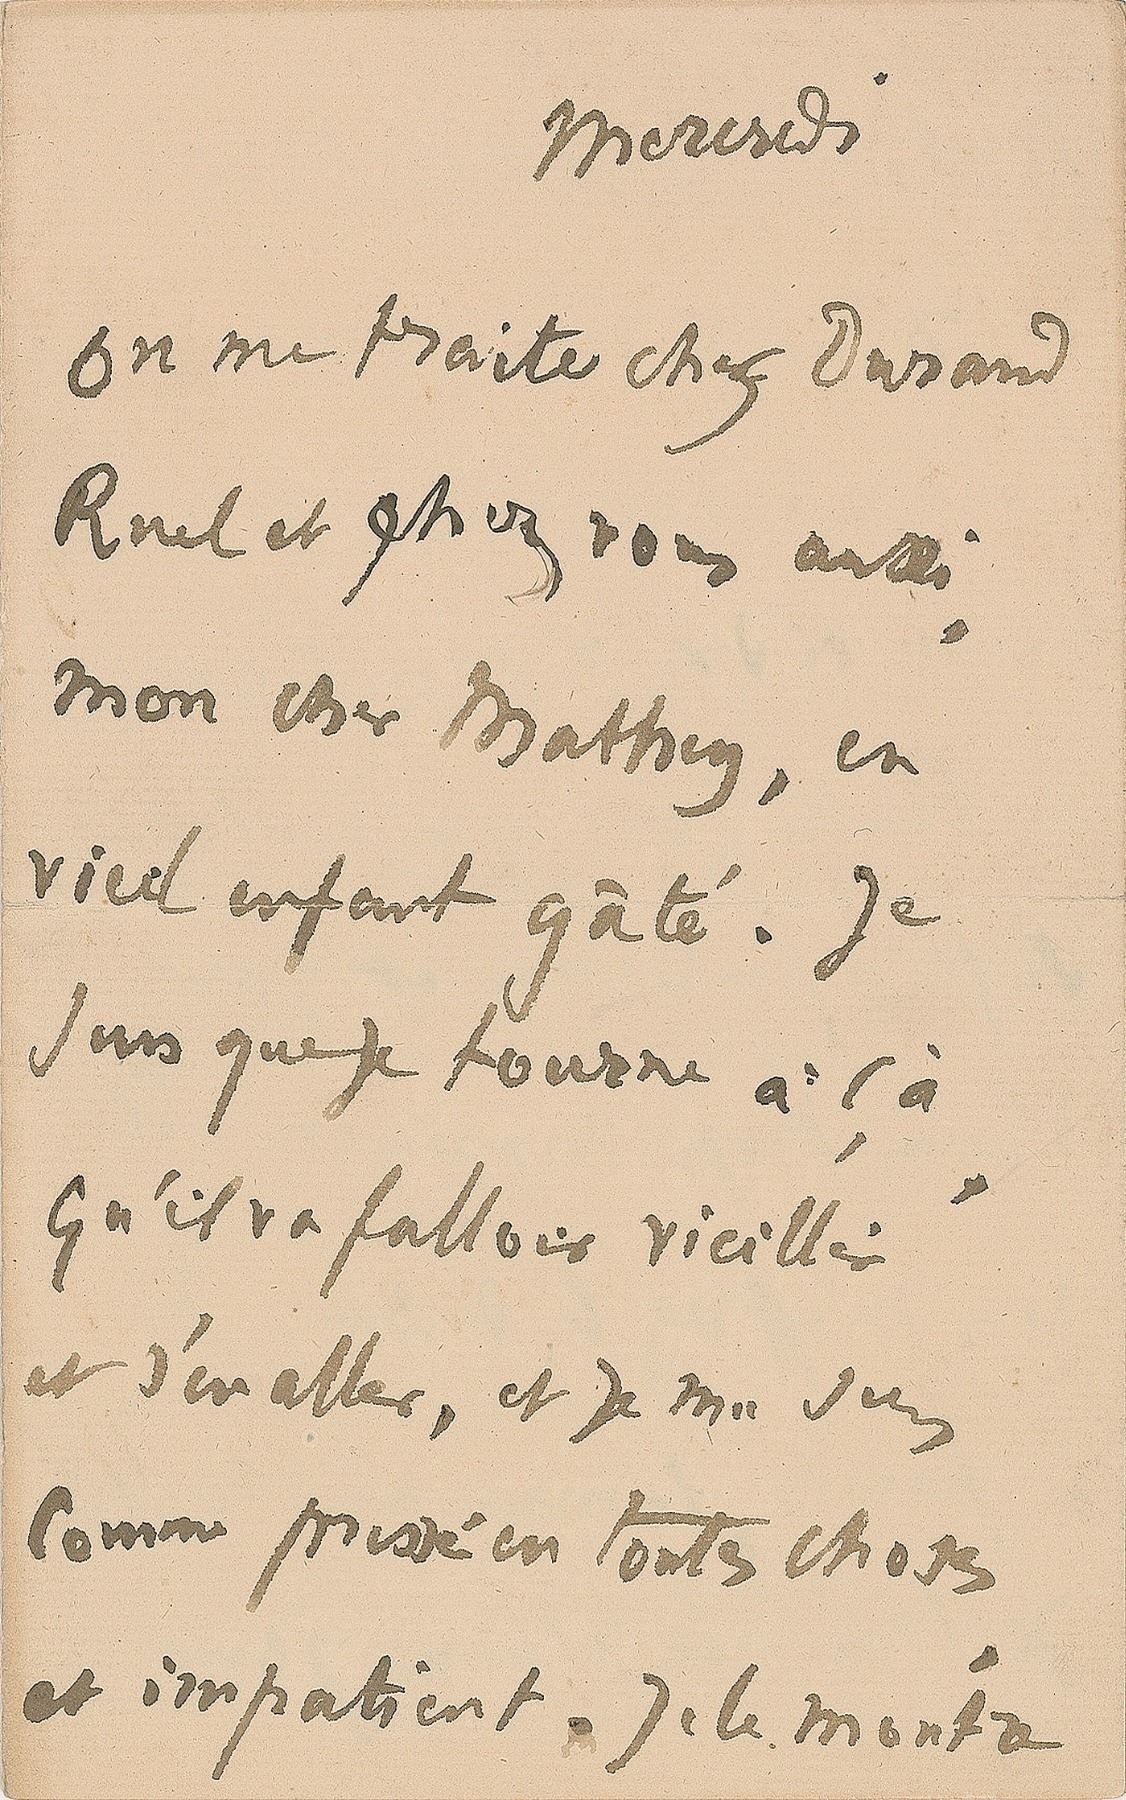 Mercredi
On me traite chez Durand
Ruel et chez vous aussi,
mon cher Mathey, en
vieil enfant gâté. Je
sens que je tourne à çà,
Qu'il va falloir vieillir
et s'en aller, et je me sens
Comme pressé en toutes choses
et impatient. Je le montre